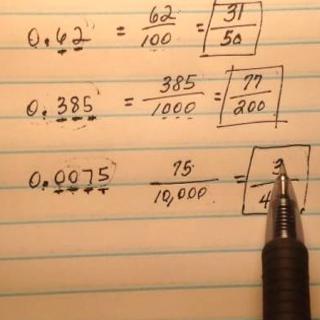 0.62 = 62/100 = 31/50
0.385 = 385/1000 = 77/200
0.0075 75/10,000 = 3/4